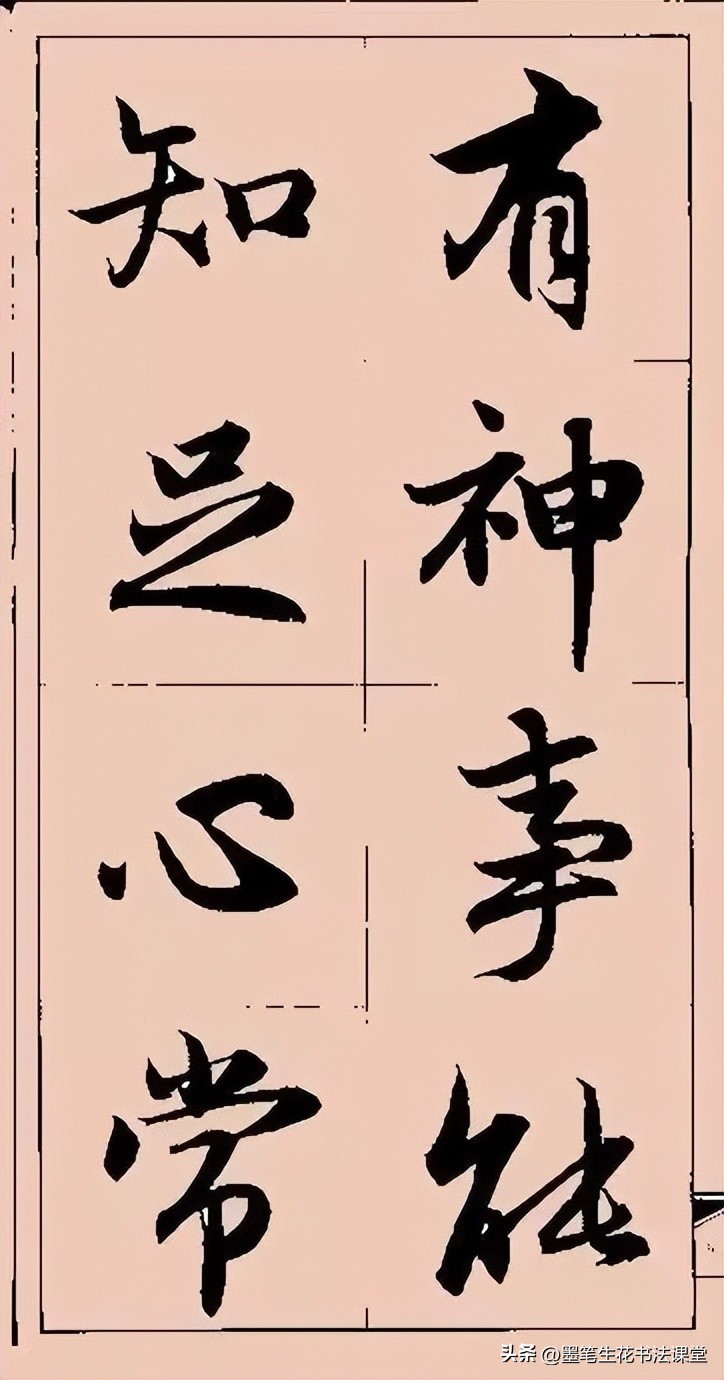 有神事能
知足心常
头条 @墨笔生花书法课堂